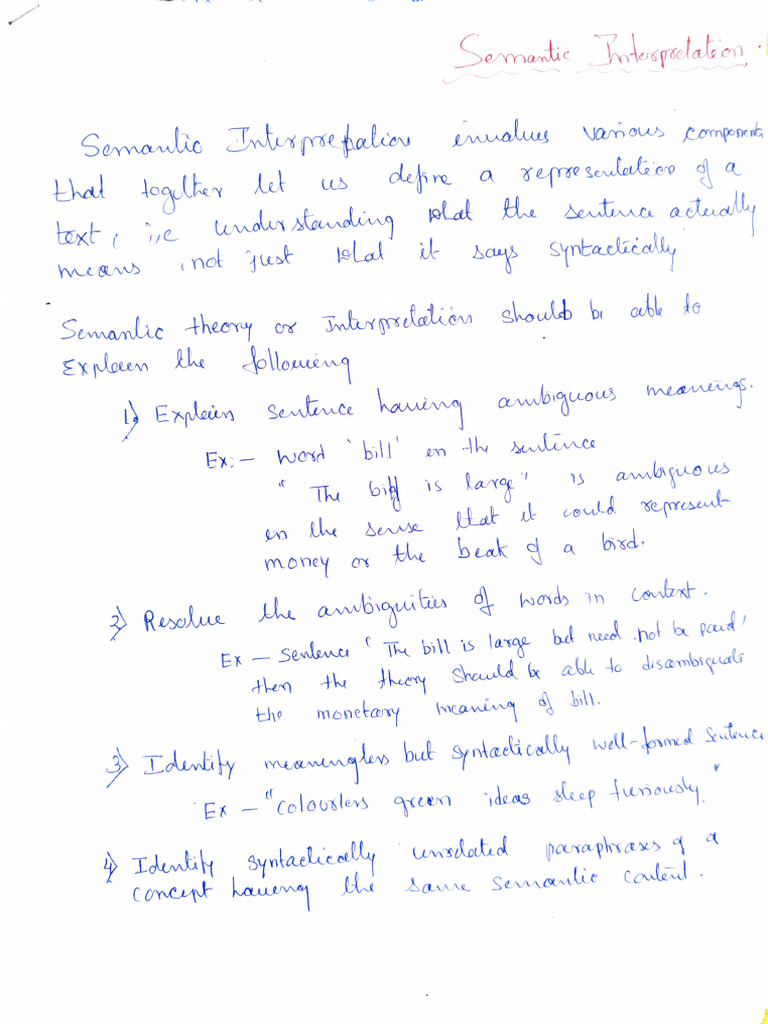 Semantic Interpretation.
Semantic Interpretation involves various components
that together let us define a representation of a
text, i.e understanding what the sentence actually
means , not just what it says syntactically
Semantic theory or Interpretation should be able to
Explain the following
1) Explain sentence having ambiguous meanings.
Ex:- word 'bill' in the sentence
" The bill is large" is ambiguous
in the sense that it could represent
money or the beak of a bird.
2) Resolve the ambiguities of words in context.
Ex - Sentence ' The bill is large but need not be paid'
then the theory should be able to disambiguate
the monetary meaning of bill.
3) Identify meaningless but syntactically well-formed sentence
Ex - "Colourless green ideas sleep furiously."
4) Identify syntactically unrelated paraphrases of a
concept having the same semantic content.